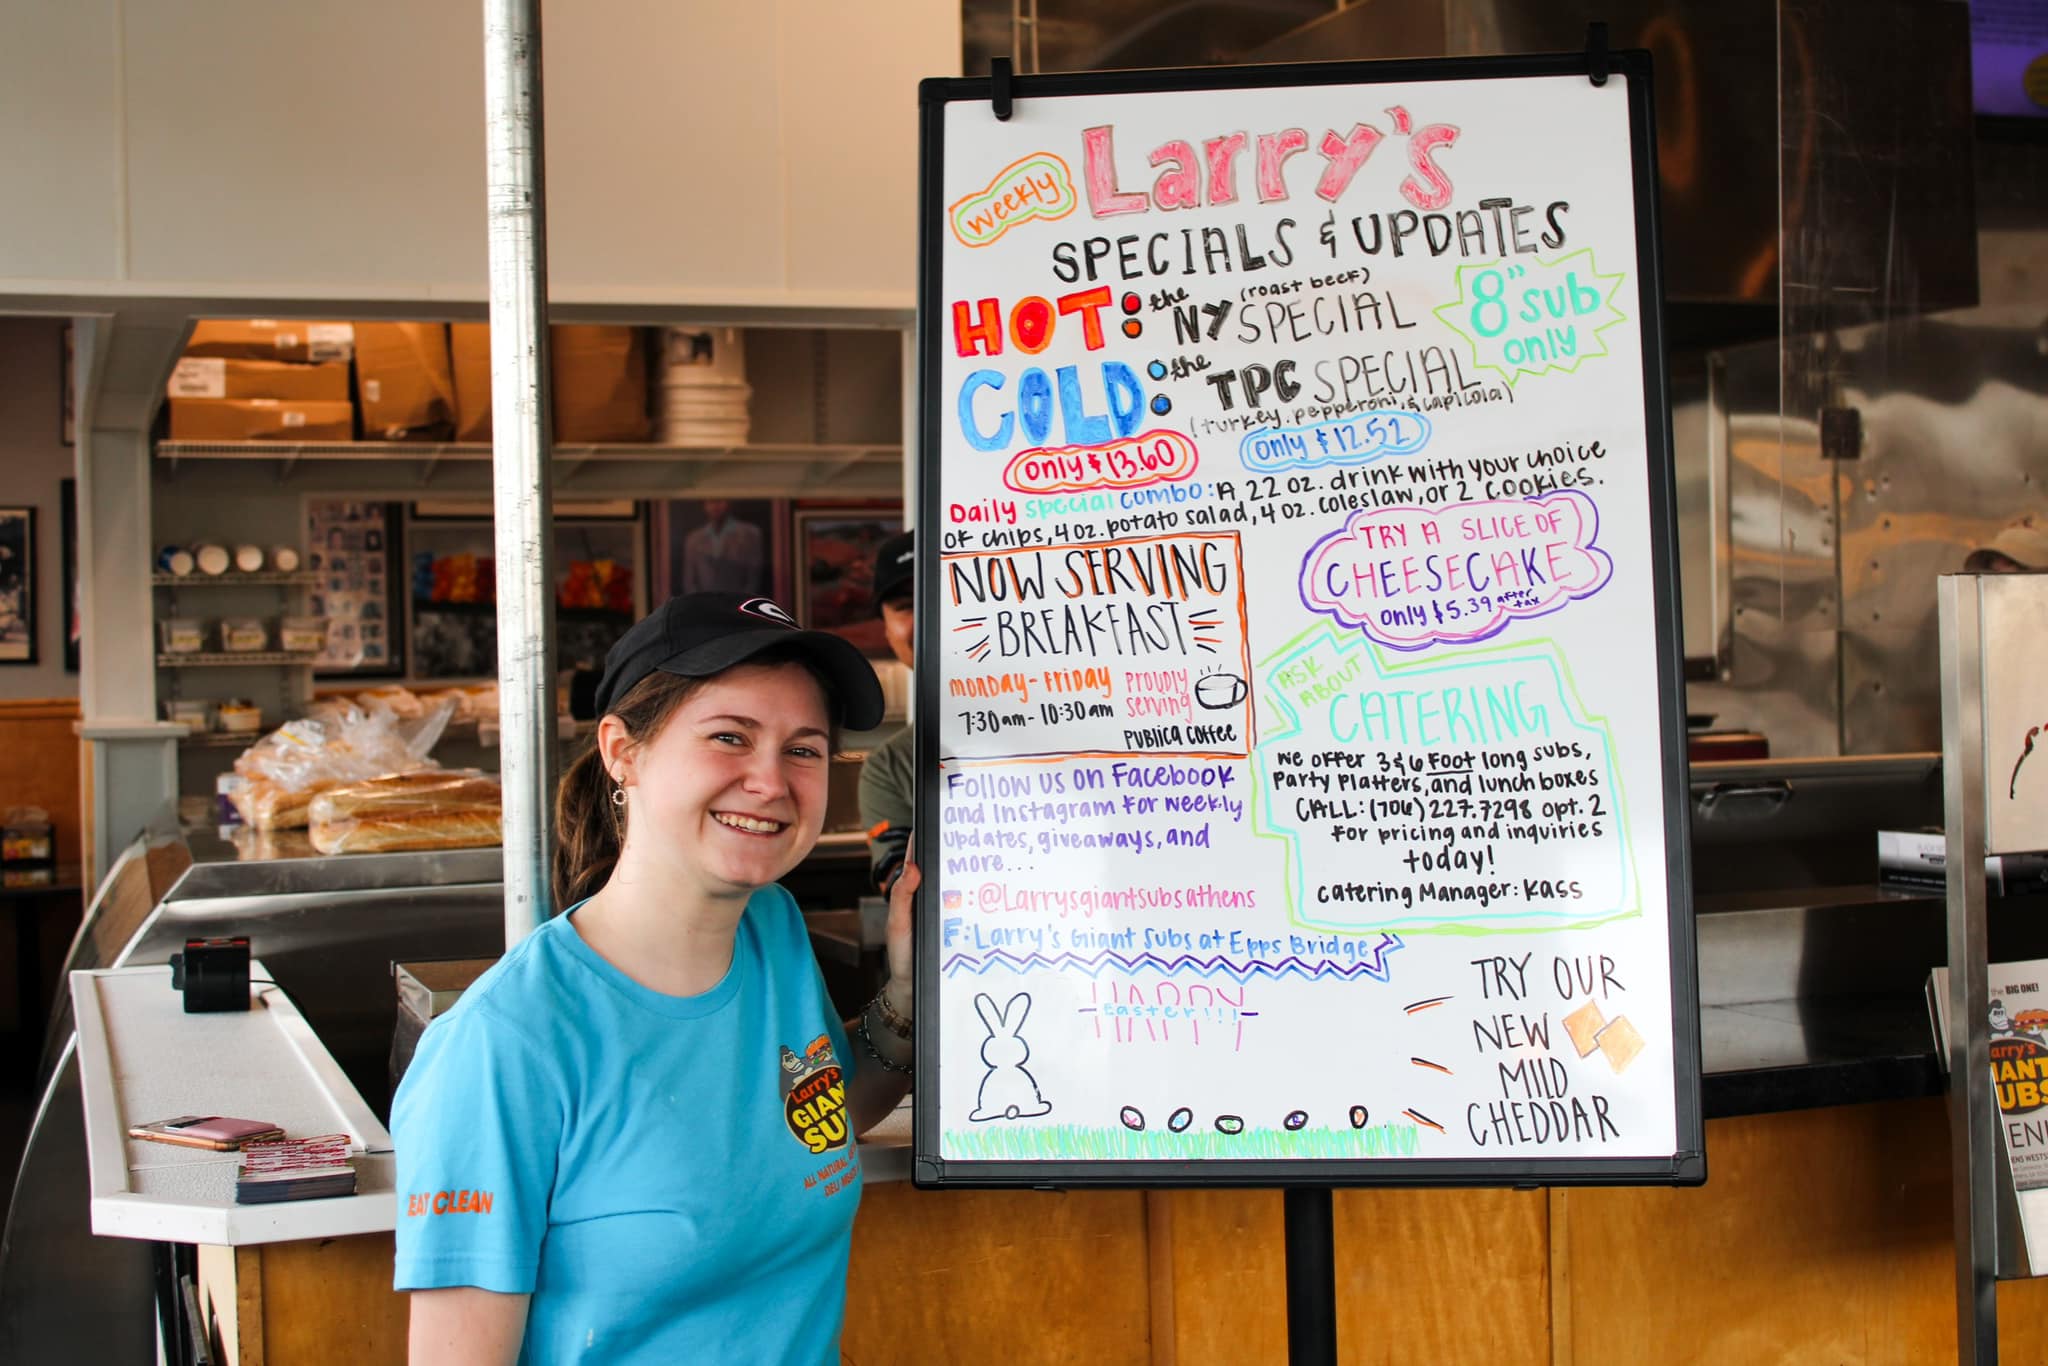 weekly
Larry's
SPECIALS & UPDATES
HOT: the NY SPECIAL
(roast beef)
8" sub
only
COLD: the TPC SPECIAL
(turkey, pepperoni, & capicola)
only $13.60
only $12.52
Daily special combo: A 22 oz. drink with your choice
of chips, 4 oz. potato salad, 4 oz. coleslaw, or 2 cookies.
NOW SERVING
BREAKFAST
Monday - Friday
7:30am - 10:30am
proudly
serving
Publica coffee
TRY A SLICE OF
CHEESECAKE
only $5.39 after
tax
ASK
ABOUT
CATERING
We offer 3 & 6 Foot long subs,
Party Platters, and lunch boxes
CALL: (706) 227.7298 opt. 2
for pricing and inquiries
today!
Catering Manager: Kass
Follow us on Facebook
and Instagram for weekly
updates, giveaways, and
more...
: @Larrysgiantsubsathens
F: Larry's Giant Subs at Epps Bridge
HAPPY
Easter!!!
TRY OUR
NEW
MILD
CHEDDAR
G
Larry's
GIANT
SU
ALL NATURAL
DELI
EAT CLEAN
the BIG ONE!
arry's
IANT
UBS